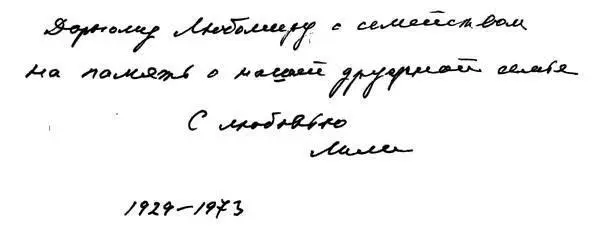 Дорогому Любомиру с семейством
на память о нашей дружной семье
С любовью
Лили
1929-1973